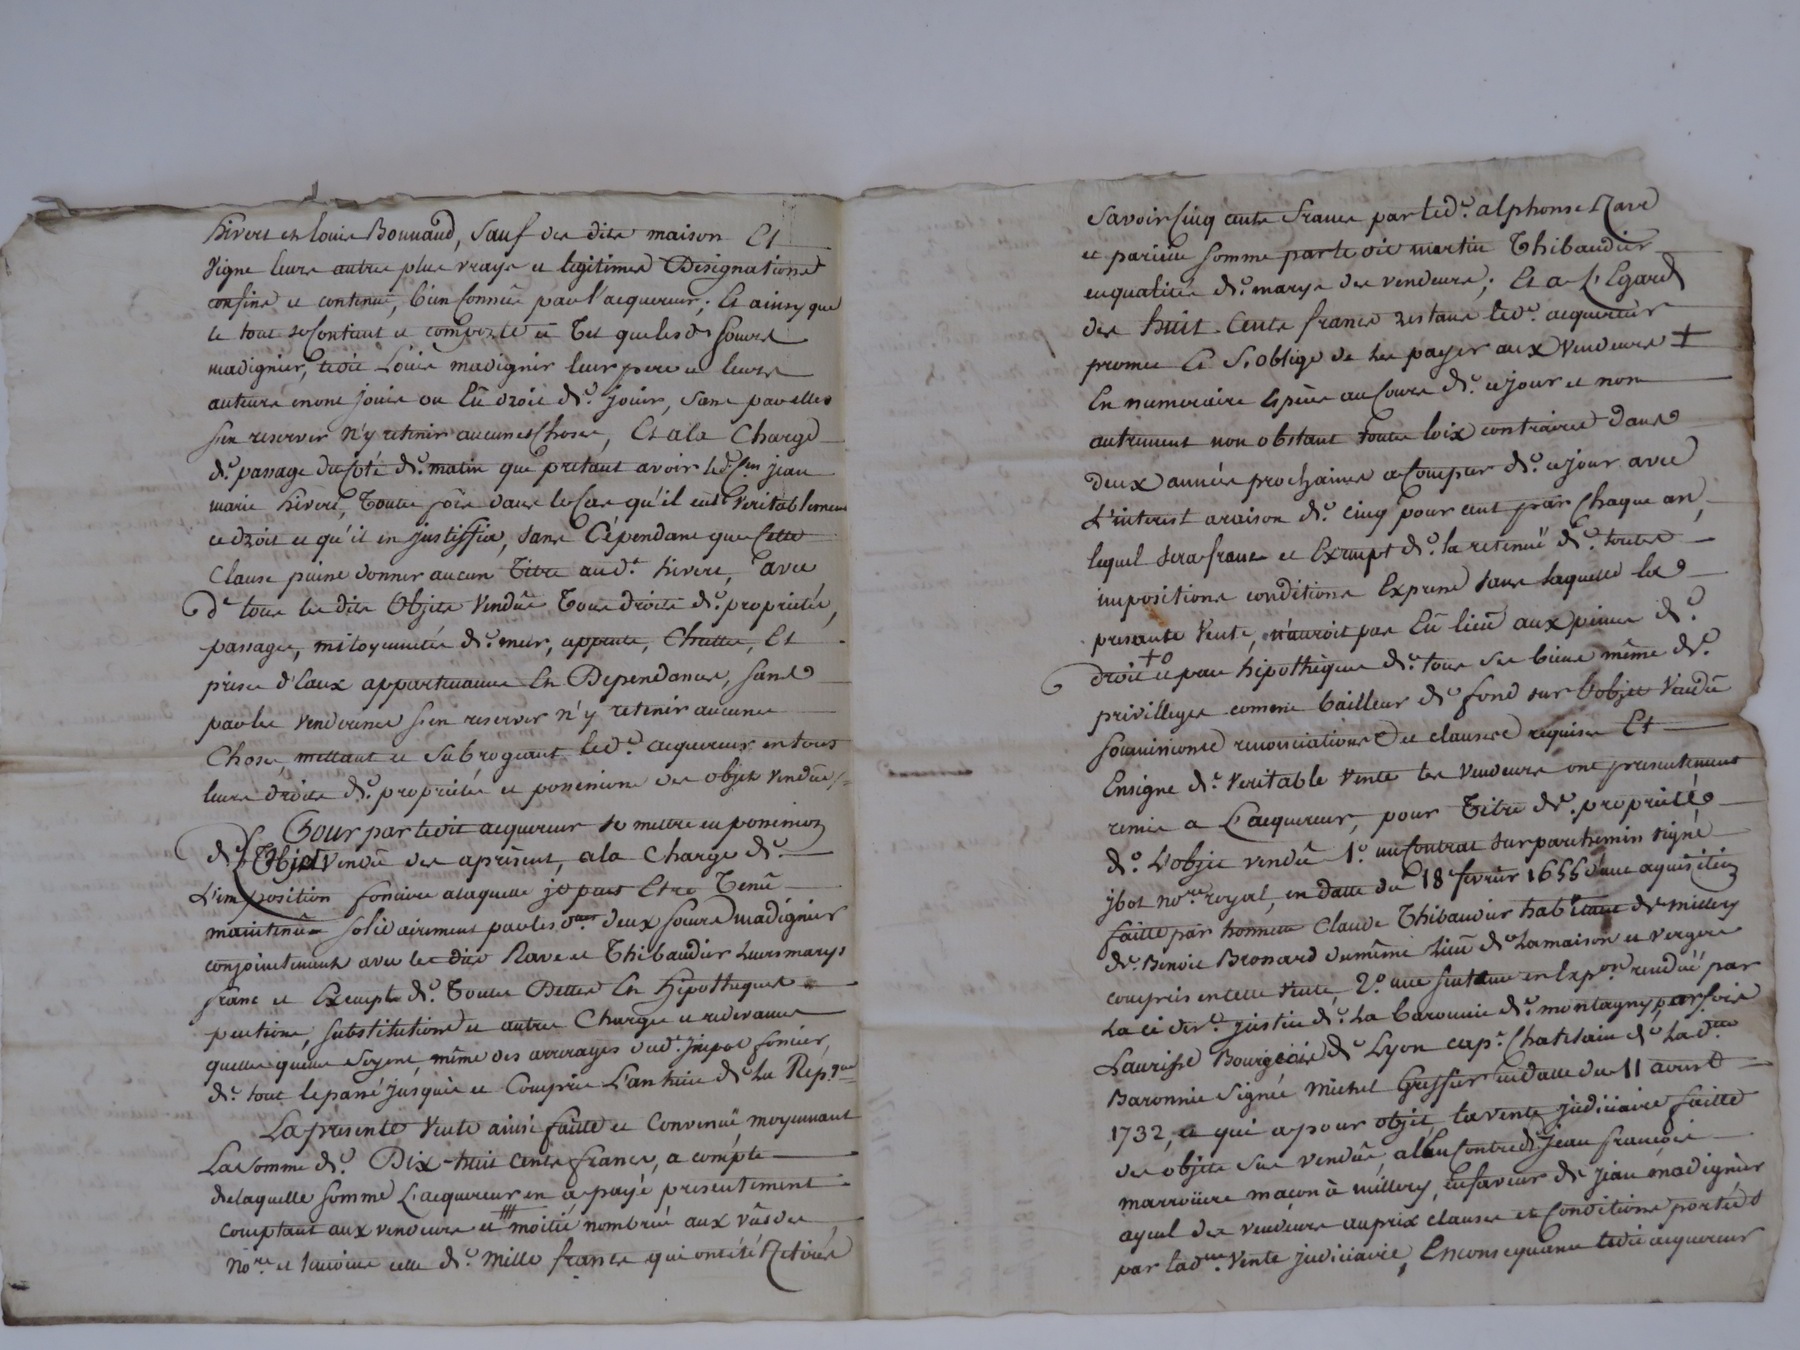 hivert et louis Bonnaud, sauf des dite maison Et
Vigne leurs autres plus vrays et legitimes Designations
confins et contenue, bien connue par l'acquereur; Et ainsy que
le tout se contient et comporte et tel que lesd. soeurs
madignier, ledit Louis madignier leur pere et leurs
auteurs en ont jouis ou Eû droit de. jouir, sans par elles
s'en reserver n'y retenir aucunes Choses, Et a la Charge
de. passage du Coté de. matin que pretant avoir led. jean
marie hivert, Toute fois dans le Cas qu'il eut Veritablement
ce droit et qu'il en justiffia, sans Cépendant que Cette
Clause puisse donner aucun Titre aud.t hivert, avec
de tous les dits Objets Vendûs Tous droits de. proprietés,
passages, mitoyennetés de. mur, appents, Chuttes, Et
prises d'Eaux appartenances En Dependances, sans
par les venderesses s'en reserver n'y retenir aucunes
Choses, mettant et subrogeant led.t acquereur en tous
leurs droits de. proprietés et possessions des objets vendûs /=
Pour par ledit acquereur se mettre en possession
de. l'Objet Vendû des apresent, a la charge de.
L'imposition fonciere a laquelle je puis Etre Tenû
maintenûe solidairement par les d. deux soeurs madignier
conjointement avec les dits Rave et Thibaudier leurs marys
franc et Exempt de. Toutes Dettes En Hipotheques
pentions, substitutions et autres Charges et redevances
quelles quelles soyent, même des arrerages dud. jmpot foncier,
de. tout le passé jusqu'ici et Compris L'an huit de La Rep.que
La présente Vente ainsi faitte et Convenuë moyennant
La somme de. Dix-huit Cents francs, a compte
de laquelle somme L'acquereur en a payé presentement
comptant aux vendeurs et moitié nombrée aux vûs des
No.res et temoins celle de. Mille francs qui ont été Retirés
Savoir Cinq cents francs par led.t alphonse Rave
et pareille somme par ledit martin Thibaudier
en qualités de. marys des vendeurs; Et a L'Egard
des Huit-Cents francs restans led.t acquereur
promet Et S'oblige de les payer aux Vendeurs +
En numeraire Espèces au Cours de. ce jour et non
autrement non obstant toutes loix contraires dans
deux années prochaines a Compter de. ce jour avec
L'interest a raison de. cinq pour cent par Chaque an,
lequel sera franc et Exempt de. la retenuë de. toutes
impositions conditions Expresse sans laquelle la
presente Vente, n'auroit pas Eû lieû aux peines de.
droit +o et par hipothèque de. tous ses biens même de.
privilleges comme bailleur de fond sur l'objet Vendû
soumissions renonciations et clauses requises Et
Ensigne de. Veritable Vente les Vendeurs ont presentement
remis a L'acquereur, pour Titre de. propriété
de. L'objet vendû 1.o un Contrat sur parchemin signé
jbot no.re royal, en datte du 18 fevrier 1655 d'une aquisition
faitte par honnette Claude Thibaudier habitant de millery
de. Benoit Bronard du même lieû de la maison et vergers
compris en cette Vente, 2.o une sentence en Exp.on renduë par
La ci dev.t justice de. La baronnie de. montagny, par fois
Laurisse Bourgeois de Lyon cap.n Chatelain de La d.te
Baronnie Signée Michel Greffier en datte du 11 avril
1732, ce qui a pour objet la vente judiciaire faitte
des objets sus vendûs, a l'Encontre de Jean françois
marroüere maçon à millery, en faveur de Jean madignier
ayeul des vendeurs au prix clauses et Conditions portées
par lad.te Vente judiciaire, En consequence ledit acquereur